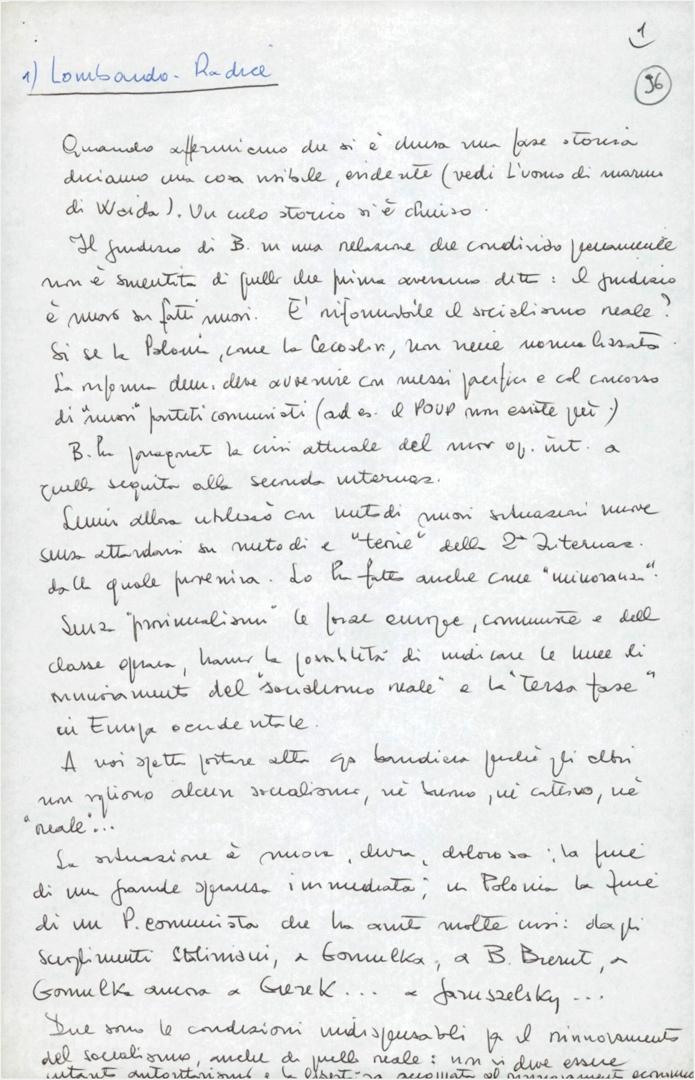 1
96
1) Lombardo-Radice
Quando affermiamo che si è chiusa una fase storica
diciamo una cosa visibile, evidente (vedi L'uomo di marmo
di Waida). Un ciclo storico si è chiuso.
Il giudizio di B. in una relazione che condivido pienamente
non è smentita di quello che prima avevamo detto: il giudizio
è nuovo su fatti nuovi. E' riformabile il socialismo reale?
Sì se la Polonia, come la Cecoslov., non viene normalizzata.
La riforma dem. deve avvenire con mezzi pacifici e col concorso
di "nuovi" partiti comunisti (ad es. il POUP non esiste più.)
B. ha paragonato la crisi attuale del mov op. int. a
quella seguita alla seconda internaz.
Lenin allora utilizzò con metodi nuovi situazioni nuove
senza attardarsi su metodi e "teorie" della 2ª Internaz.
dalla quale proveniva. Lo ha fatto anche come "minoranza".
Senza "provincialismi" le forze europee, comuniste e della
classe operaia, hanno la possibilità di indicare le linee di
rinnovamento del "socialismo reale" e la "terza fase"
in Europa occidentale.
A noi spetta portare alta qs bandiera perché gli altri
non vogliono alcun socialismo, né buono, né cattivo, né
"reale"...
La situazione è nuova, dura, dolorosa; la fine
di una grande speranza immediata; in Polonia la fine
di un P. comunista che ha avute molte crisi: dagli
scioglimenti Staliniani, a Gomulka, a B. Bierut, a
Gomulka ancora a Gierek... a Jaruszelsky...
Due sono le condizioni indispensabili per il rinnovamento
del socialismo, anche di quello reale: non vi deve essere
autoritarismo e la